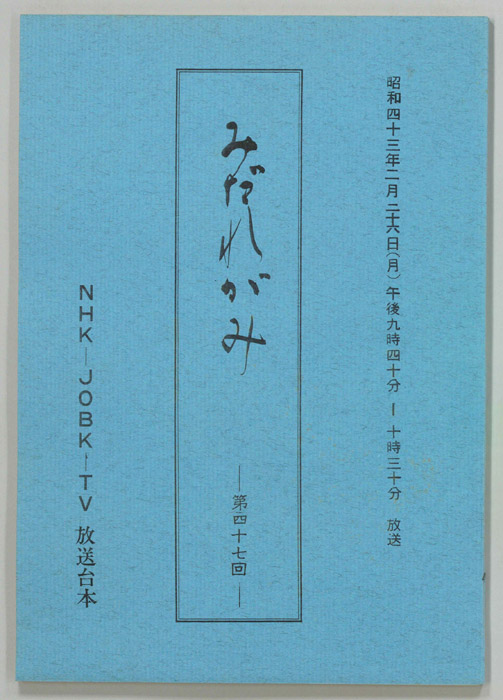 昭和四十三年二月二十六日(月)午後九時四十分ー十時三十分 放送
みだれがみ
―第四十七回―
NHK―JOBK―TV 放送台本